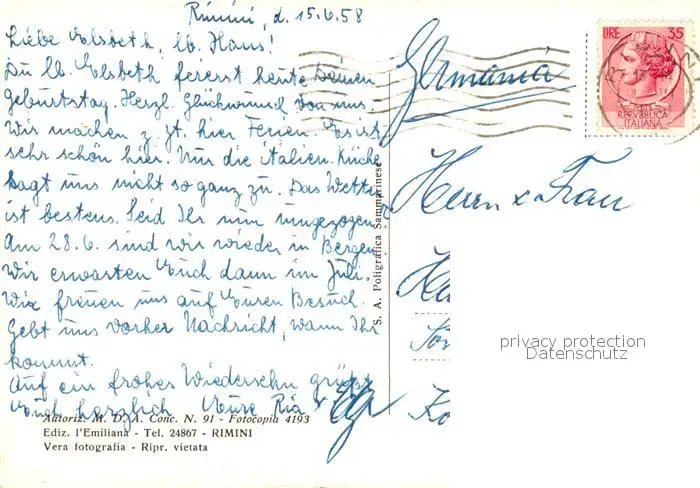 Rimini, d. 15.6.58
Liebe Elsbeth, lb. Hans!
Du lb. Elsbeth feierst heute Deinen
Geburtstag. Herzl. Glückwunsch von uns.
Wir machen z. zt. hier Ferien. Es ist
sehr schön hier. Nur die italien. Küche
sagt uns nicht so ganz zu. Das Wetter
ist bestens. Seid Ihr nun umgezogen.
Am 28.6. sind wir wieder in Bergen
Wir erwarten Euch dann im Juli.
Wir freuen uns auf Euren Besuch.
Gebt uns vorher Nachricht, wann Ihr
kommt.
Auf ein frohes Wiedersehn grüsst
Euch herzlich Eure Ria
Autoriz. M. D. A. Conc. N. 91 - Fotocopia 4193
Ediz. l'Emiliana - Tel. 24867 - RIMINI
Vera fotografia - Ripr. vietata
S. A. Poligrafica Sammarinese
LIRE 35
REPVBBLICA
ITALIANA
Germania
Herrn & Frau
privacy protection
Datenschutz